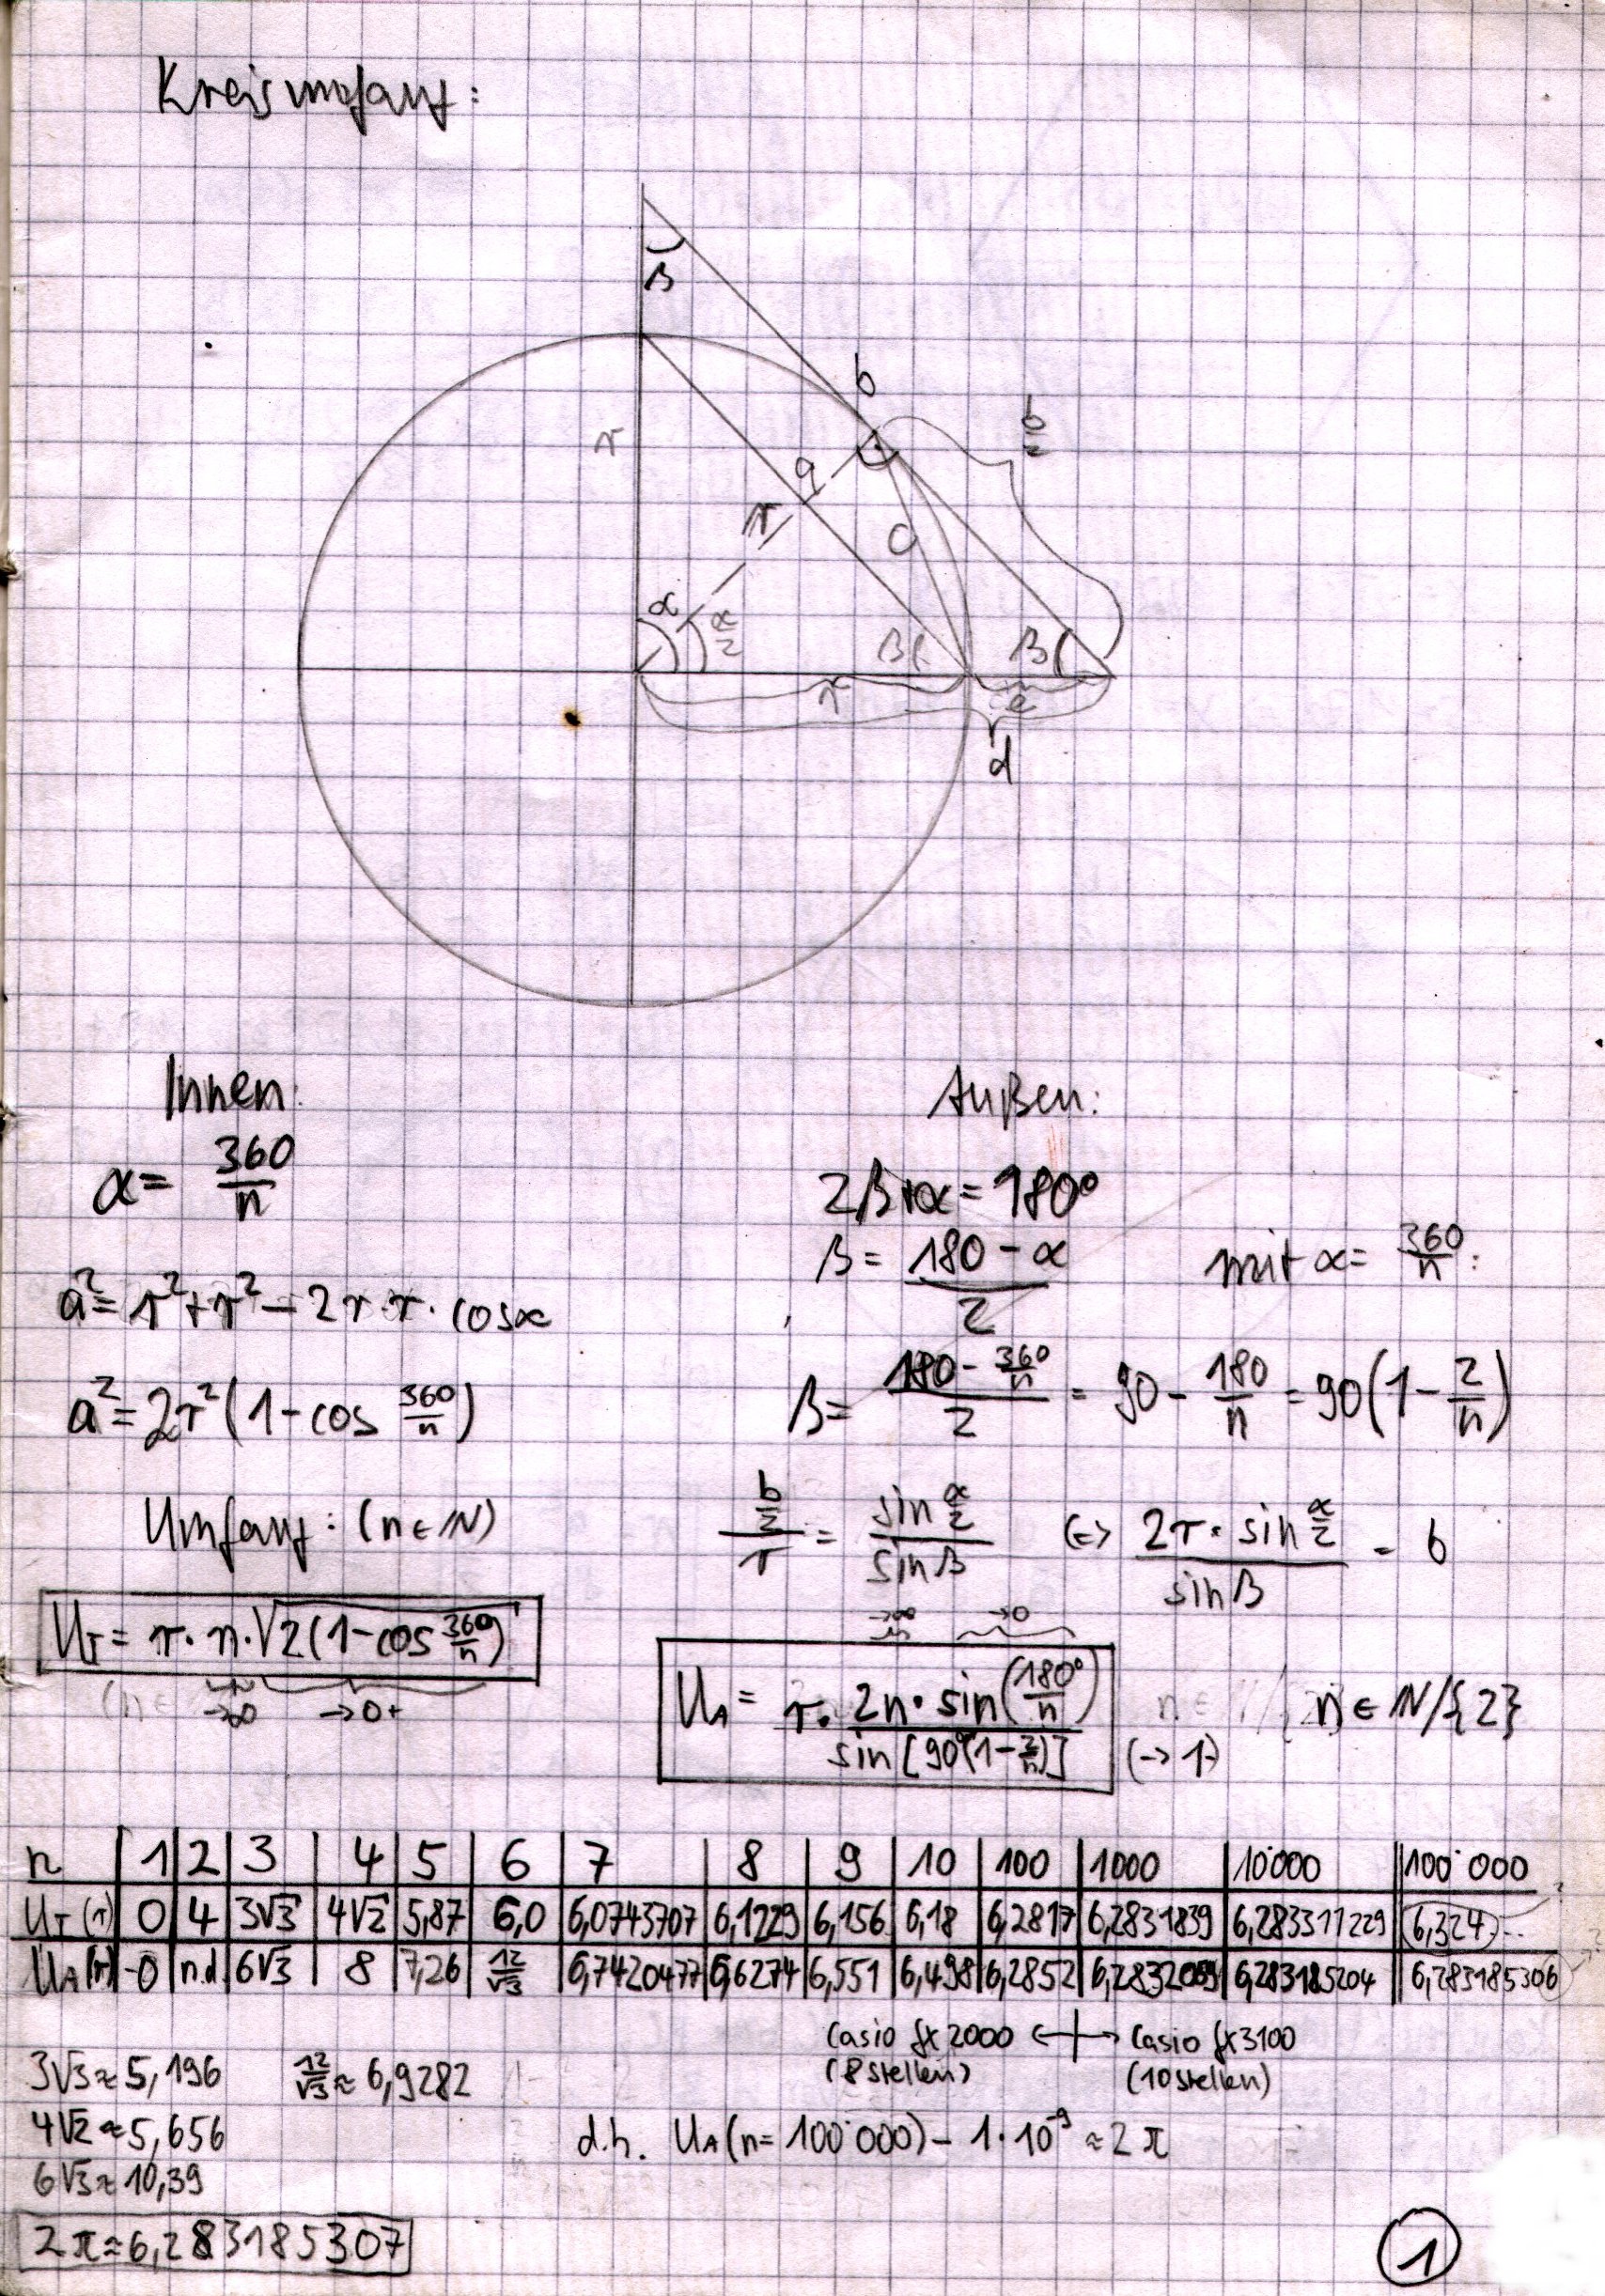 Kreisumfang:
β
b
b/2
r
a
r
c
α
α/2
β
β
r
e
d
Innen:
α = 360/n
a² = r² + r² − 2r·r·cosα
a² = 2r²(1−cos 360/n)
Umfang: (n∈ℕ)
U_I = r·n·√2(1−cos 360/n)
→∞ →0+
Außen:
2β+α = 180°
β = (180−α)/2 mit α = 360/n:
β = (180 − 360/n)/2 = 90 − 180/n = 90(1−2/n)
(b/2)/r = sin α/2 / sin β <=> 2r·sin α/2 / sin β = b
→∞ →0
U_A = r· 2n·sin(180°/n) / sin[90°(1−2/n)] (→1-) n∈ℕ/{2}
n | 1 | 2 | 3 | 4 | 5 | 6 | 7 | 8 | 9 | 10 | 100 | 1000 | 10'000 | 100'000
U_I (r) | 0 | 4 | 3√3 | 4√2 | 5,87 | 6,0 | 6,0743707 | 6,1229 | 6,156 | 6,18 | 6,2817 | 6,2831839 | 6,283311229 | 6,324...
U_A (r) | -0 | n.d. | 6√3 | 8 | 7,26 | 12/√3 | 6,7420477 | 6,6274 | 6,551 | 6,498 | 6,2852 | 6,2832059 | 6,283185204 | 6,283185306
Casio fx 2000 <-+-> Casio fx 3100
(8 Stellen) (10 Stellen)
3√3 ≈ 5,196 12/√3 ≈ 6,9282
4√2 ≈ 5,656
d.h. U_A (n = 100'000) − 1·10⁻⁹ ≈ 2π
6√3 ≈ 10,39
2π ≈ 6,283185307
1